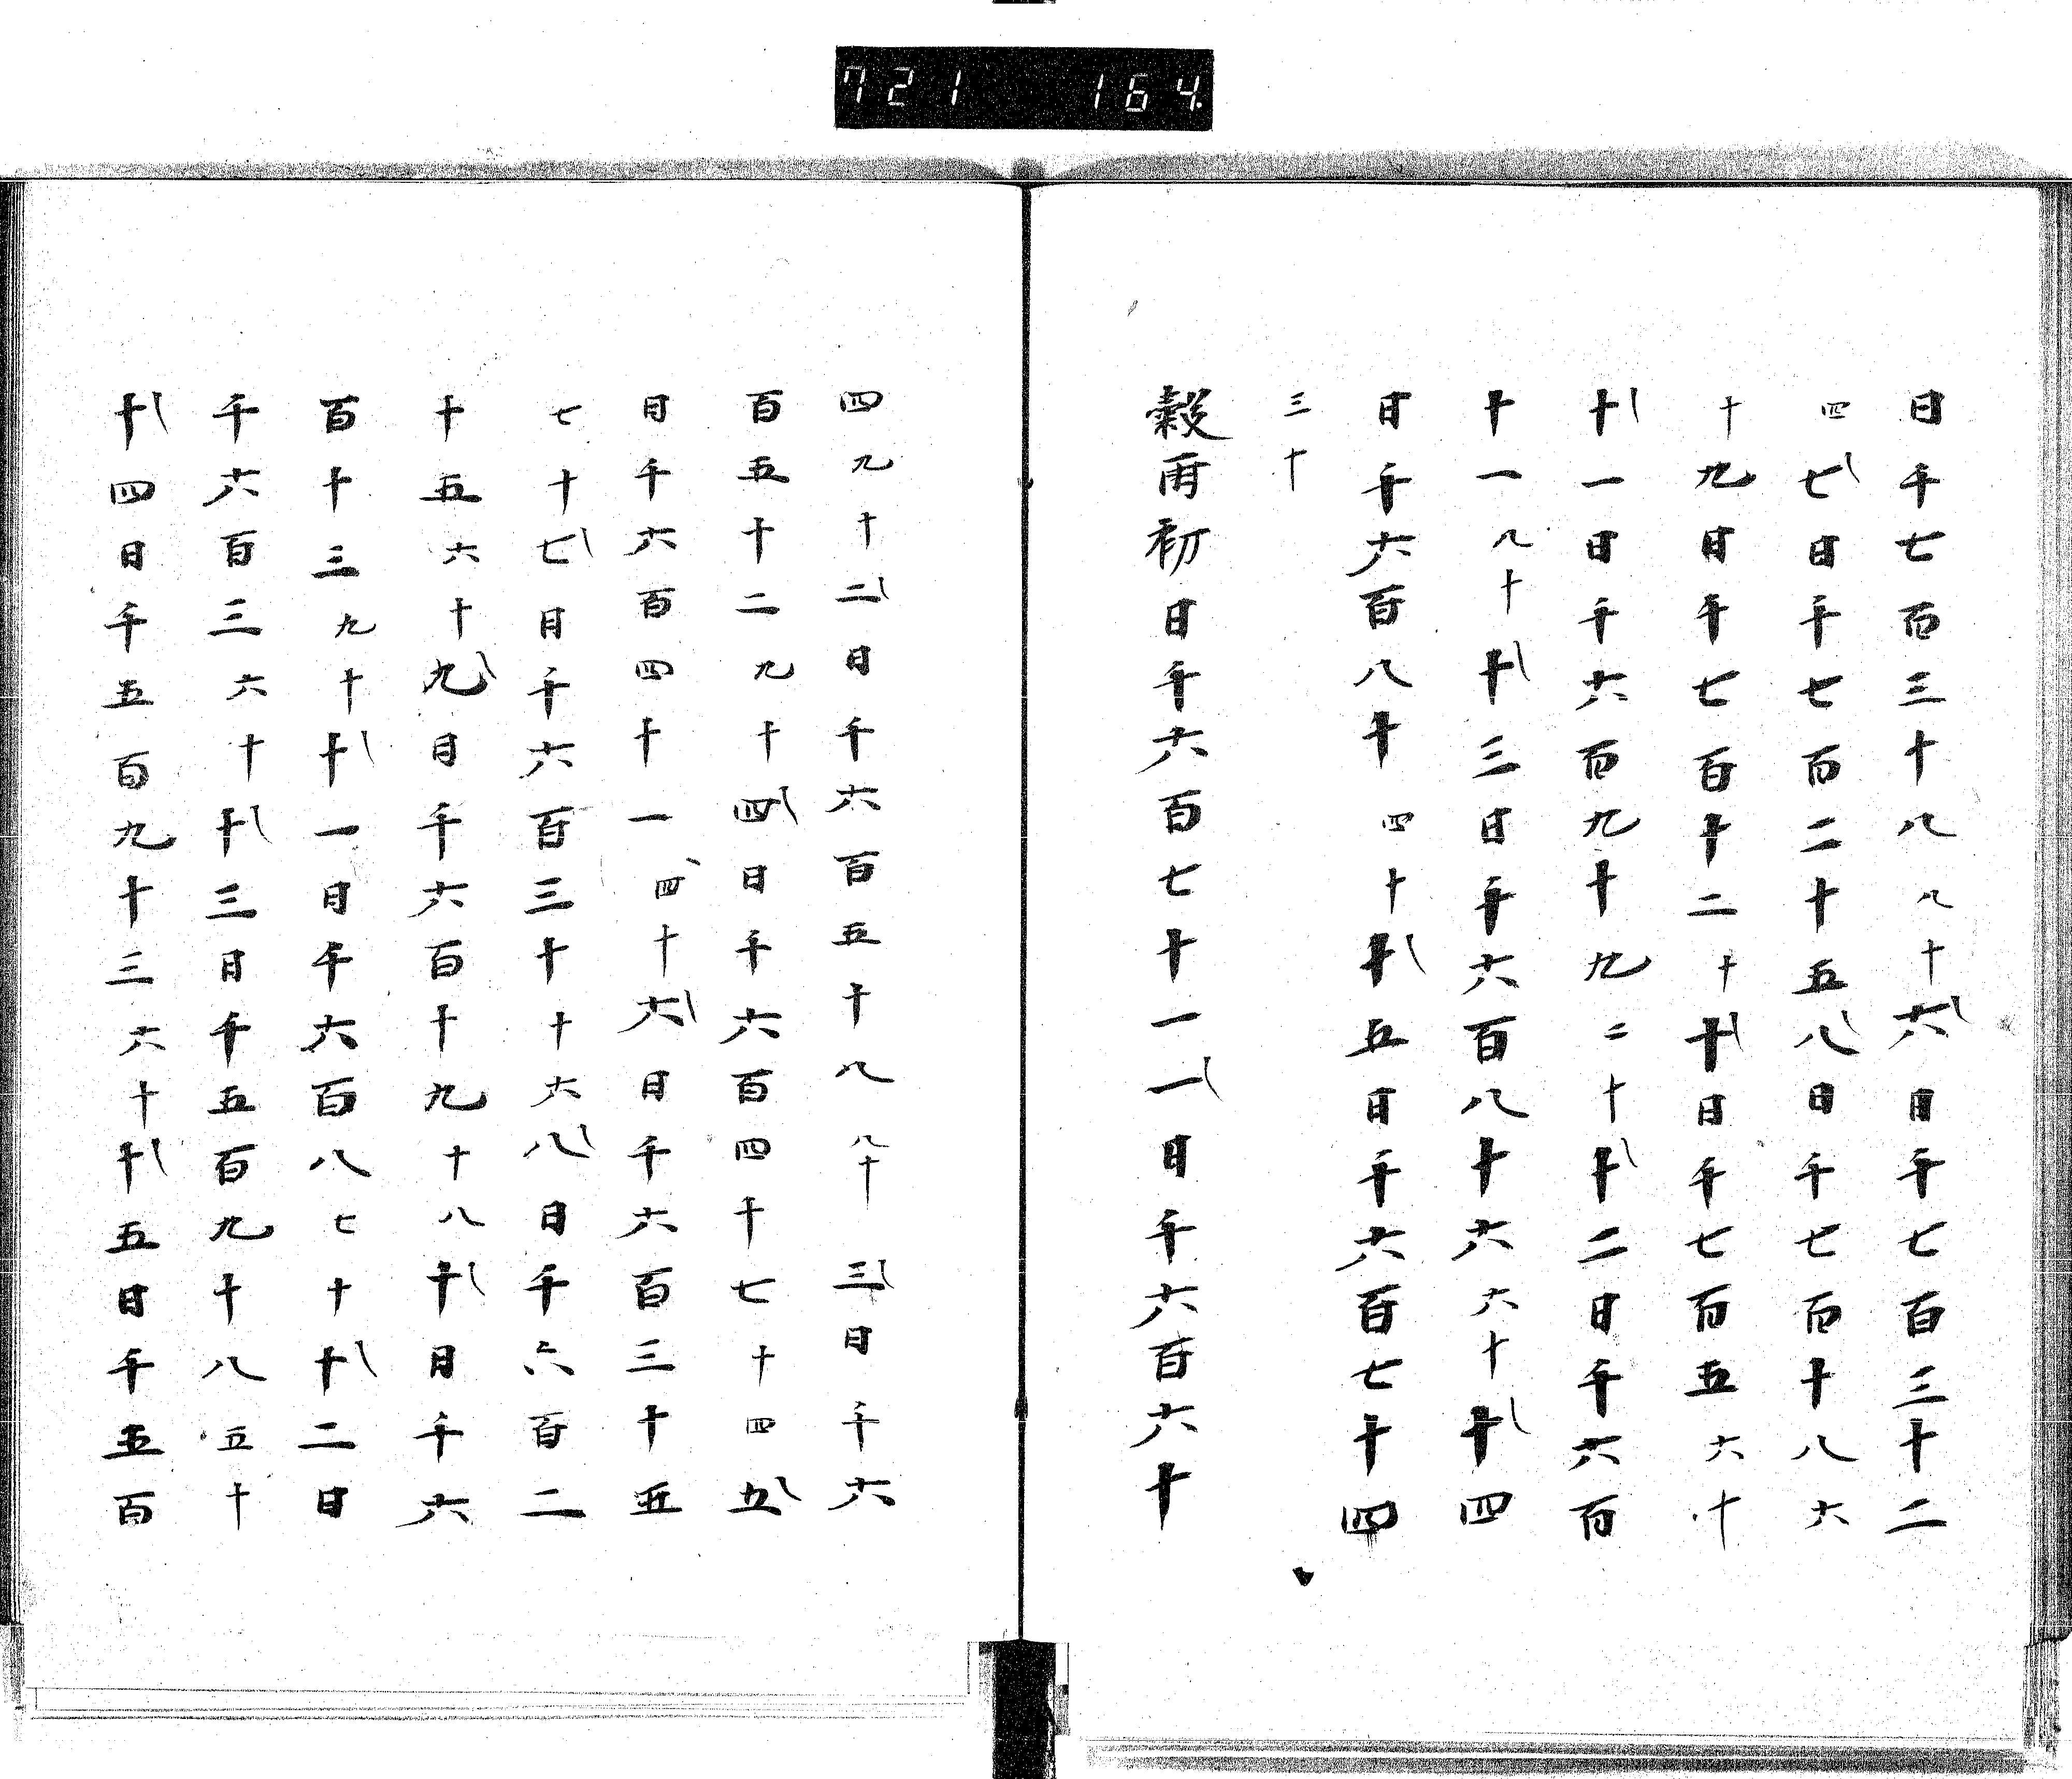 721 164
日千七百三十八八十六日千七百三十二
四七日千七百二十五八日千七百十八六
十九日千七百十二十十日千七百五六十
十一日千六百九十九二十十二日千六百
十一八十十三日千六百八十六六十十四
日千六百八十四十十五日千六百七十四
三十
穀雨初日千六百七十一一日千六百六十
四九十二日千六百五十八八十三日千六
百五十二九十四日千六百四十七十四五
日千六百四十一四十六日千六百三十五
七十七日千六百三十十六八日千六百二
十五六十九日千六百十九十八十日千六
百十三九十十一日千六百八七十十二日
千六百三六十十三日千五百九十八五十
十四日千五百九十三六十十五日千五百